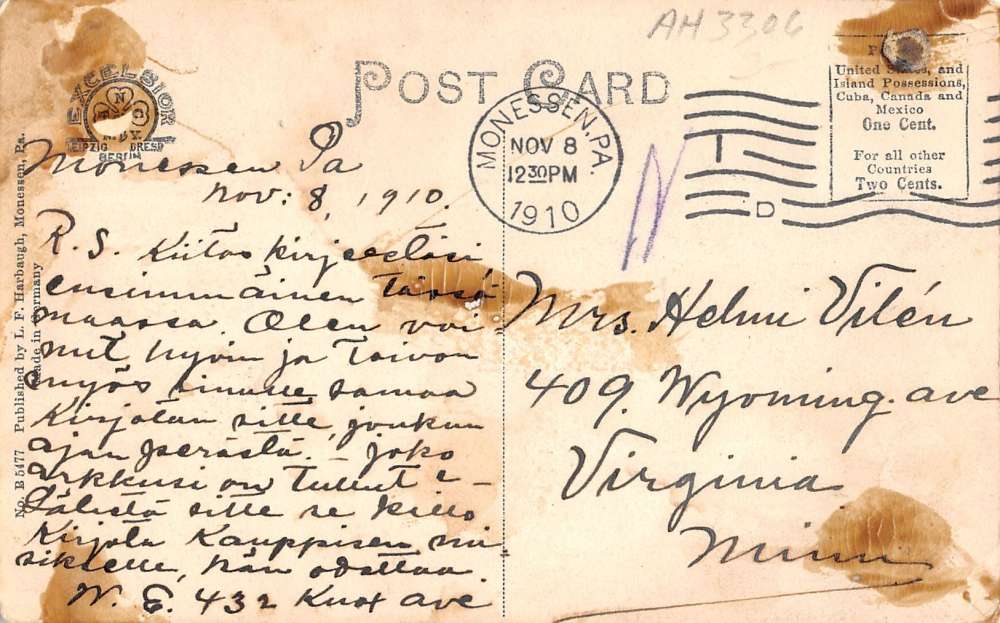 AH3306
POST CARD
EXCELSIOR
LEIPZIG DRESD
BERLIN
MONESSEN, PA.
NOV 8
12 30 PM
1910
D
United States, and
Island Possessions,
Cuba, Canada and
Mexico
One Cent.
For all other
Countries
Two Cents.
No. B 5477 Published by L. F. Harbaugh, Monessen, Pa.
Made in Germany
Monessen Pa
Nov: 8, 1910.
R. S. Kiitos kirjeestäsi
ensimmäinen tässä
maassa. Olen voi
nut hyvin ja toivon
myös sinulle samaa
Kirjotan sitte jonkun
ajan perästä. Joko
arkkusi on tullut e-
Säästä sitte se kello
Kirjota Kauppisen mu
sikielle, hän odottaa.
W. E. 432 Knox ave
Mrs. Helmi Vilén
409. Wyoming. ave
Virginia
Minn